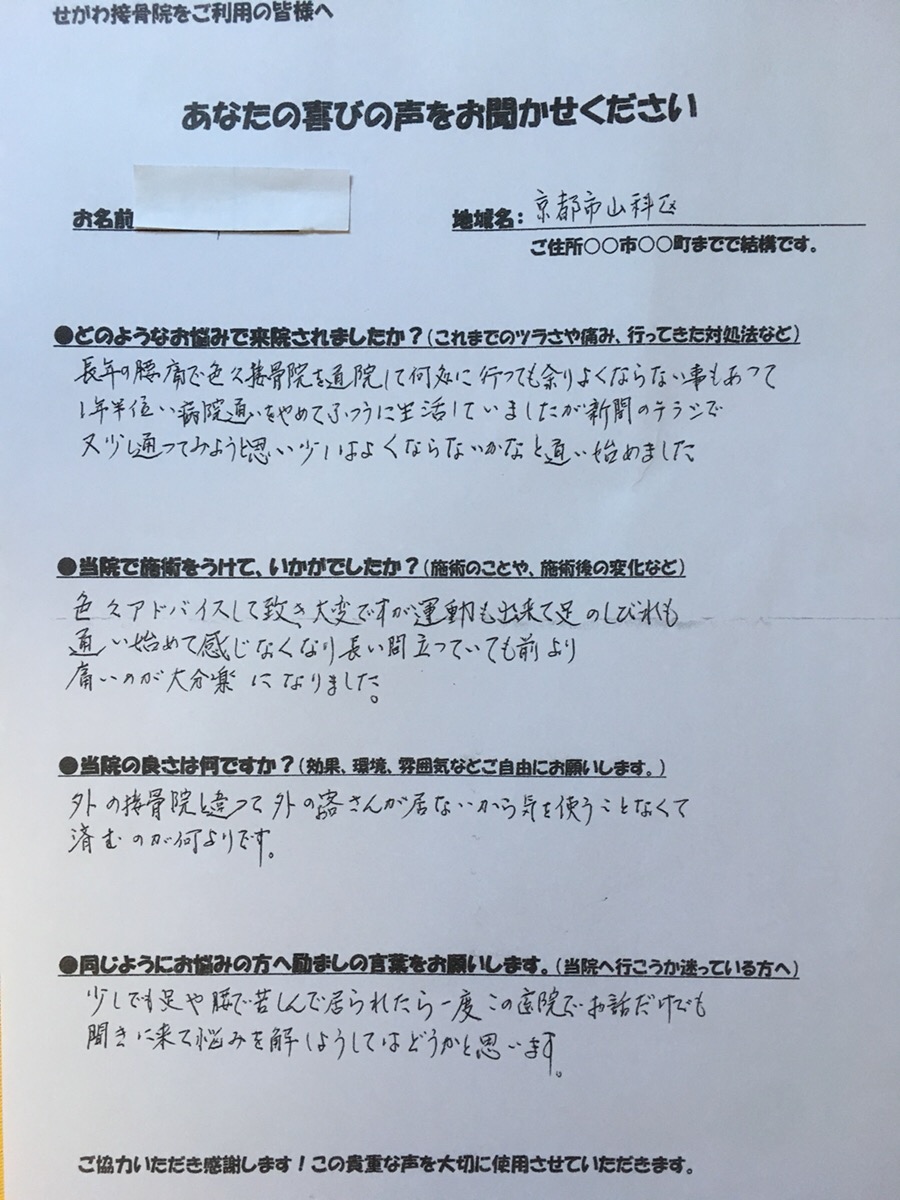 せがわ接骨院をご利用の皆様へ
あなたの喜びの声をお聞かせください
お名前
地域名：京都市山科区
ご住所〇〇市〇〇町までで結構です。
●どのようなお悩みで来院されましたか？（これまでのツラさや痛み、行ってきた対処法など）
長年の腰痛で色々接骨院を通院して何処に行っても余りよくならない事もあって
1年半位い病院通いをやめてふつうに生活していましたが新聞のチラシで
又少し通ってみようと思い少しはよくならないかなと通い始めました
●当院で施術をうけて、いかがでしたか？（施術のことや、施術後の変化など）
色々アドバイスして致き大変ですが運動も出来て足のしびれも
通い始めて感じなくなり長い間立っていても前より
痛いのが大分楽になりました。
●当院の良さは何ですか？（効果、環境、雰囲気などご自由にお願いします。）
外の接骨院と違って外の客さんが居ないから気を使うことなくて
済むのが何よりです。
●同じようにお悩みの方へ励ましの言葉をお願いします。（当院へ行こうか迷っている方へ）
少しでも足や腰で苦しんで居られたら一度この医院でお話だけでも
聞きに来て悩みを解しようしてはどうかと思います。
ご協力いただき感謝します！この貴重な声を大切に使用させていただきます。